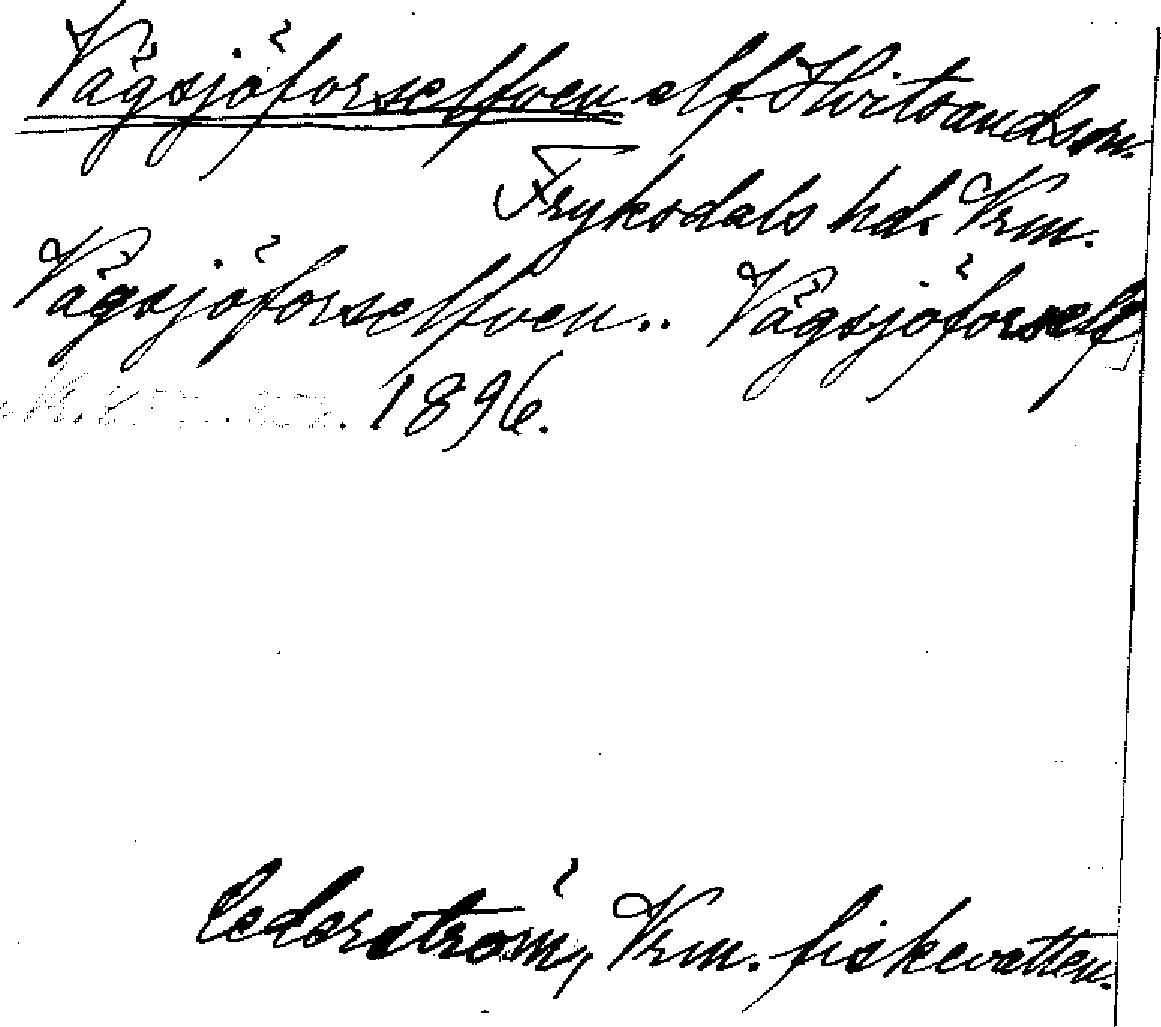 Vågsjöforselfven elf. Hvitsand sn.
Fryksdals hd. Vrm.
Vågsjöforselfven.. Vågsjöforself
1896.
Cederström, Vrm. fiskevatten.